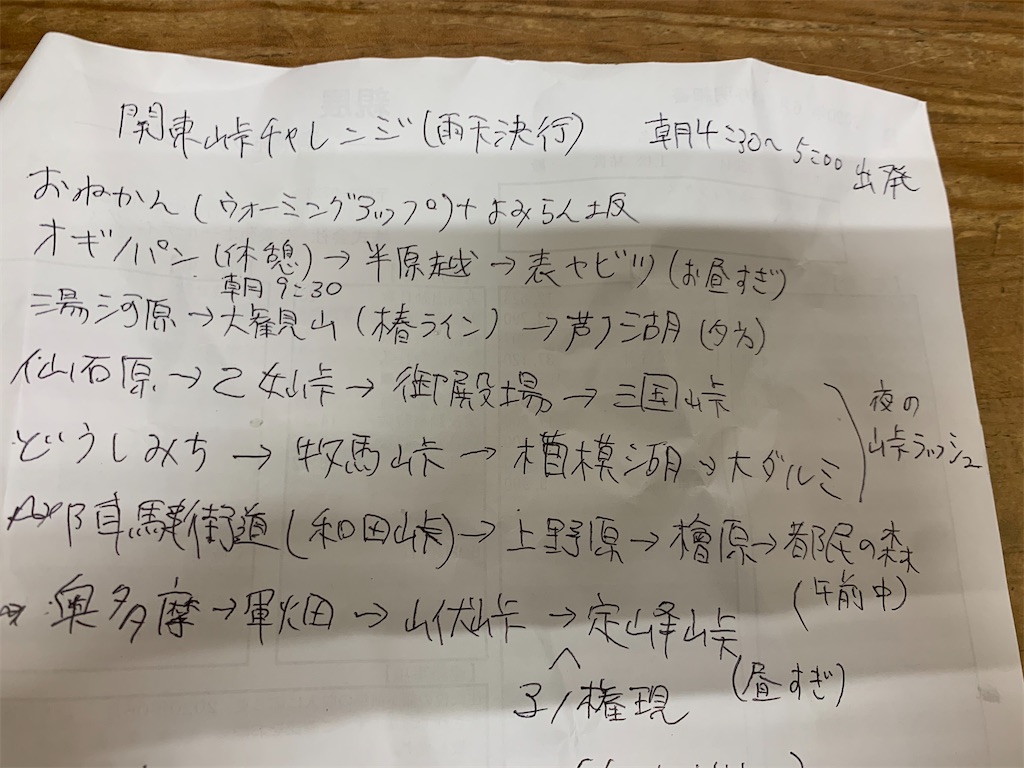 関東峠チャレンジ(雨天決行) 朝4:30〜5:00 出発
おねかん(ウォーミングアップ)+よみらん坂
オギノパン(休憩)→半原越→表ヤビツ(お昼すぎ)
朝9:30
湯河原→大観山(椿ライン)→芦ノ湖(夕方)
仙石原→乙女峠→御殿場→三国峠
どうしみち→牧馬峠→相模湖→大ダルミ
夜の
峠ラッシュ
陣馬街道(和田峠)→上野原→檜原→都民の森
(午前中)
→奥多摩→軍畑→山伏峠→定峰峠
(昼すぎ)
子ノ権現